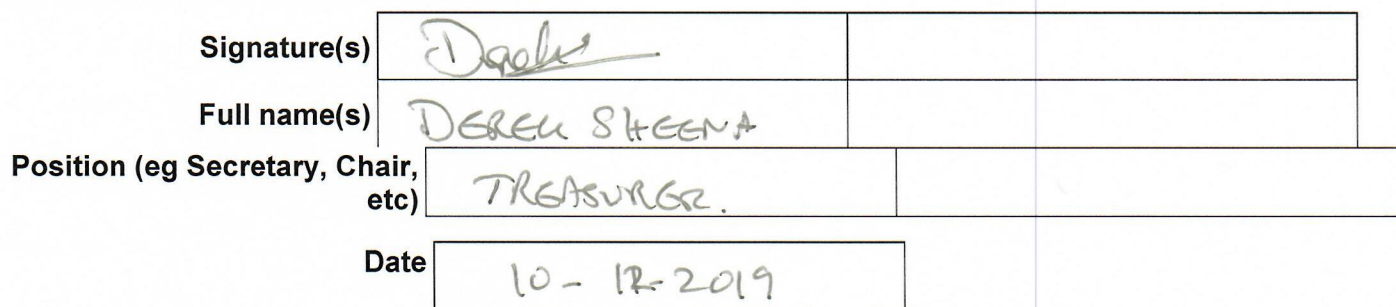 Signature(s)
Full name(s) DEREK SHEENA
Position (eg Secretary, Chair,
etc) TREASURER.
Date 10-12-2019